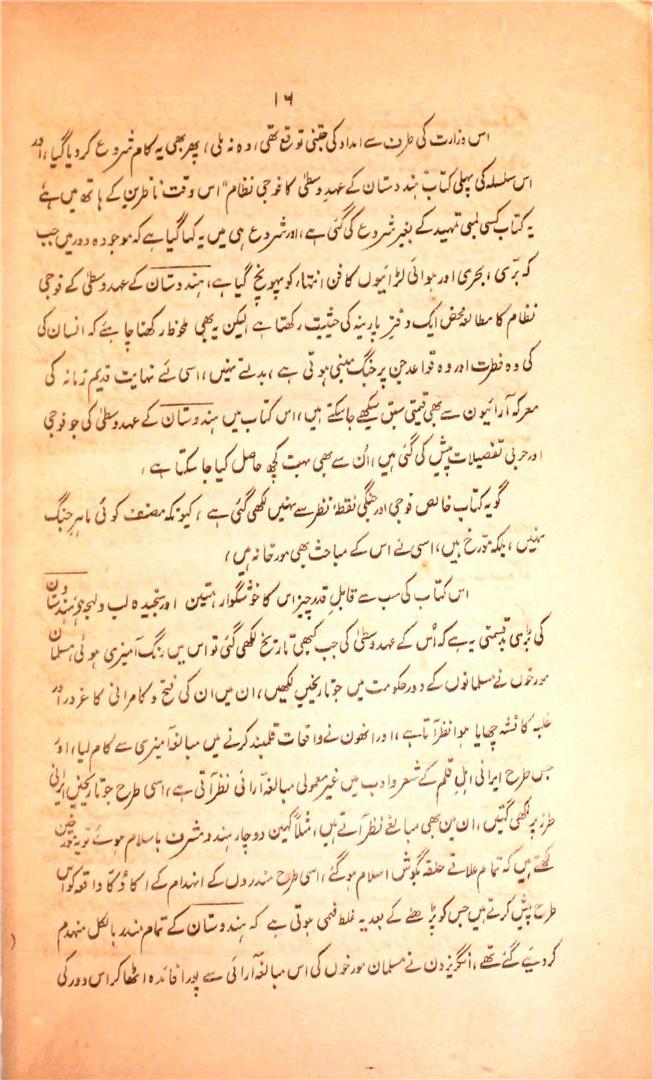 ۱۶
اس وزارت کی طرف سے امداد کی جتنی توقع تھی، وہ نہ ملی، پھر بھی یہ کام شروع کر دیا گیا، اور
اس سلسلہ کی پہلی کتاب "ہندوستان کے عہد وسطیٰ کا فوجی نظام" اس وقت ناظرین کے ہاتھ میں ہے
یہ کتاب کسی لمبی تمہید کے بغیر شروع کی گئی ہے، اور شروع ہی میں یہ کہا گیا ہے کہ موجودہ دور میں جب
کہ برّی، بحری اور ہوائی لڑائیوں کا فن انتہاء کو پہونچ گیا ہے، ہندوستان کے عہد وسطیٰ کے فوجی
نظام کا مطالعہ محض ایک دفتر پارینہ کی حیثیت رکھتا ہے لیکن یہ بھی ملحوظ رکھنا چاہئے کہ انسان کی
کی وہ فطرت اور وہ قواعد جن پر جنگ مبنی ہوتی ہے، بدلتے نہیں، اسی لئے نہایت قدیم زمانہ کی
معرکہ آرائیون سے بھی قیمتی سبق سیکھے جا سکتے ہیں، اس کتاب میں ہندوستان کے عہد وسطیٰ کی جو فوجی
اور حربی تفصیلات پیش کی گئی ہیں، اُن سے بھی بہت کچھ حاصل کیا جا سکتا ہے،
گو یہ کتاب خالص فوجی اور جنگی نقطۂ نظر سے نہیں لکھی گئی ہے، کیونکہ مصنف کوئی ماہر جنگ
نہیں، بلکہ مورّخ ہیں، اسی لئے اس کے مباحث بھی مورخانہ ہیں،
اس کتاب کی سب سے قابلِ قدر چیز اس کا خوشگوار، متین اور سنجیدہ لب و لہجہ ہے، ہندوستان
کی بڑی بدقسمتی یہ ہے کہ اُس کے عہد وسطیٰ کی جب کبھی تاریخ لکھی گئی تو اس میں رنگ آمیزی ہوئی، مسلمان
مورخوں نے مسلمانوں کے دور حکومت میں جو تاریخیں لکھیں، ان میں ان کی فتح و کامرانی کا غرور اور
غلبہ کا نشہ چھایا ہوا نظر آتا ہے، اور انھون نے واقعات قلمبند کرنے میں مبالغہ آمیزی سے کام لیا، اور
جس طرح ایرانی اہل قلم کے شعر و ادب میں غیر معمولی مبالغہ آرائی نظر آتی ہے، اسی طرح جو تاریخیں ایرانی
طرز پر لکھی گئیں، ان میں بھی مبالغے نظر آتے ہیں، مثلاً کہین دو چار ہندو مشرف باسلام ہوئے تو یہ مورخین
لکھتے ہیں کہ تمام علاقے حلقہ بگوش اسلام ہو گئے، اسی طرح مندروں کے انہدام کے اکا دکا واقعہ کو اس
طرح پیش کرتے ہیں جس کو پڑھنے کے بعد یہ غلط فہمی ہوتی ہے کہ ہندوستان کے تمام مندر بالکل منہدم
کر دیئے گئے تھے، انگریزون نے مسلمان مورخوں کی اس مبالغہ آرائی سے پورا فائدہ اٹھا کر اس دور کی